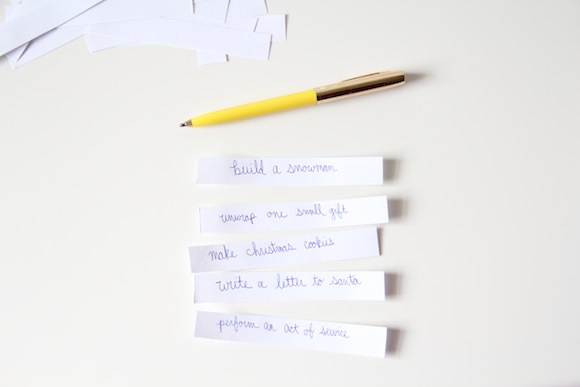 build a snowman
unwrap one small gift
make christmas cookies
write a letter to santa
perform an act of service